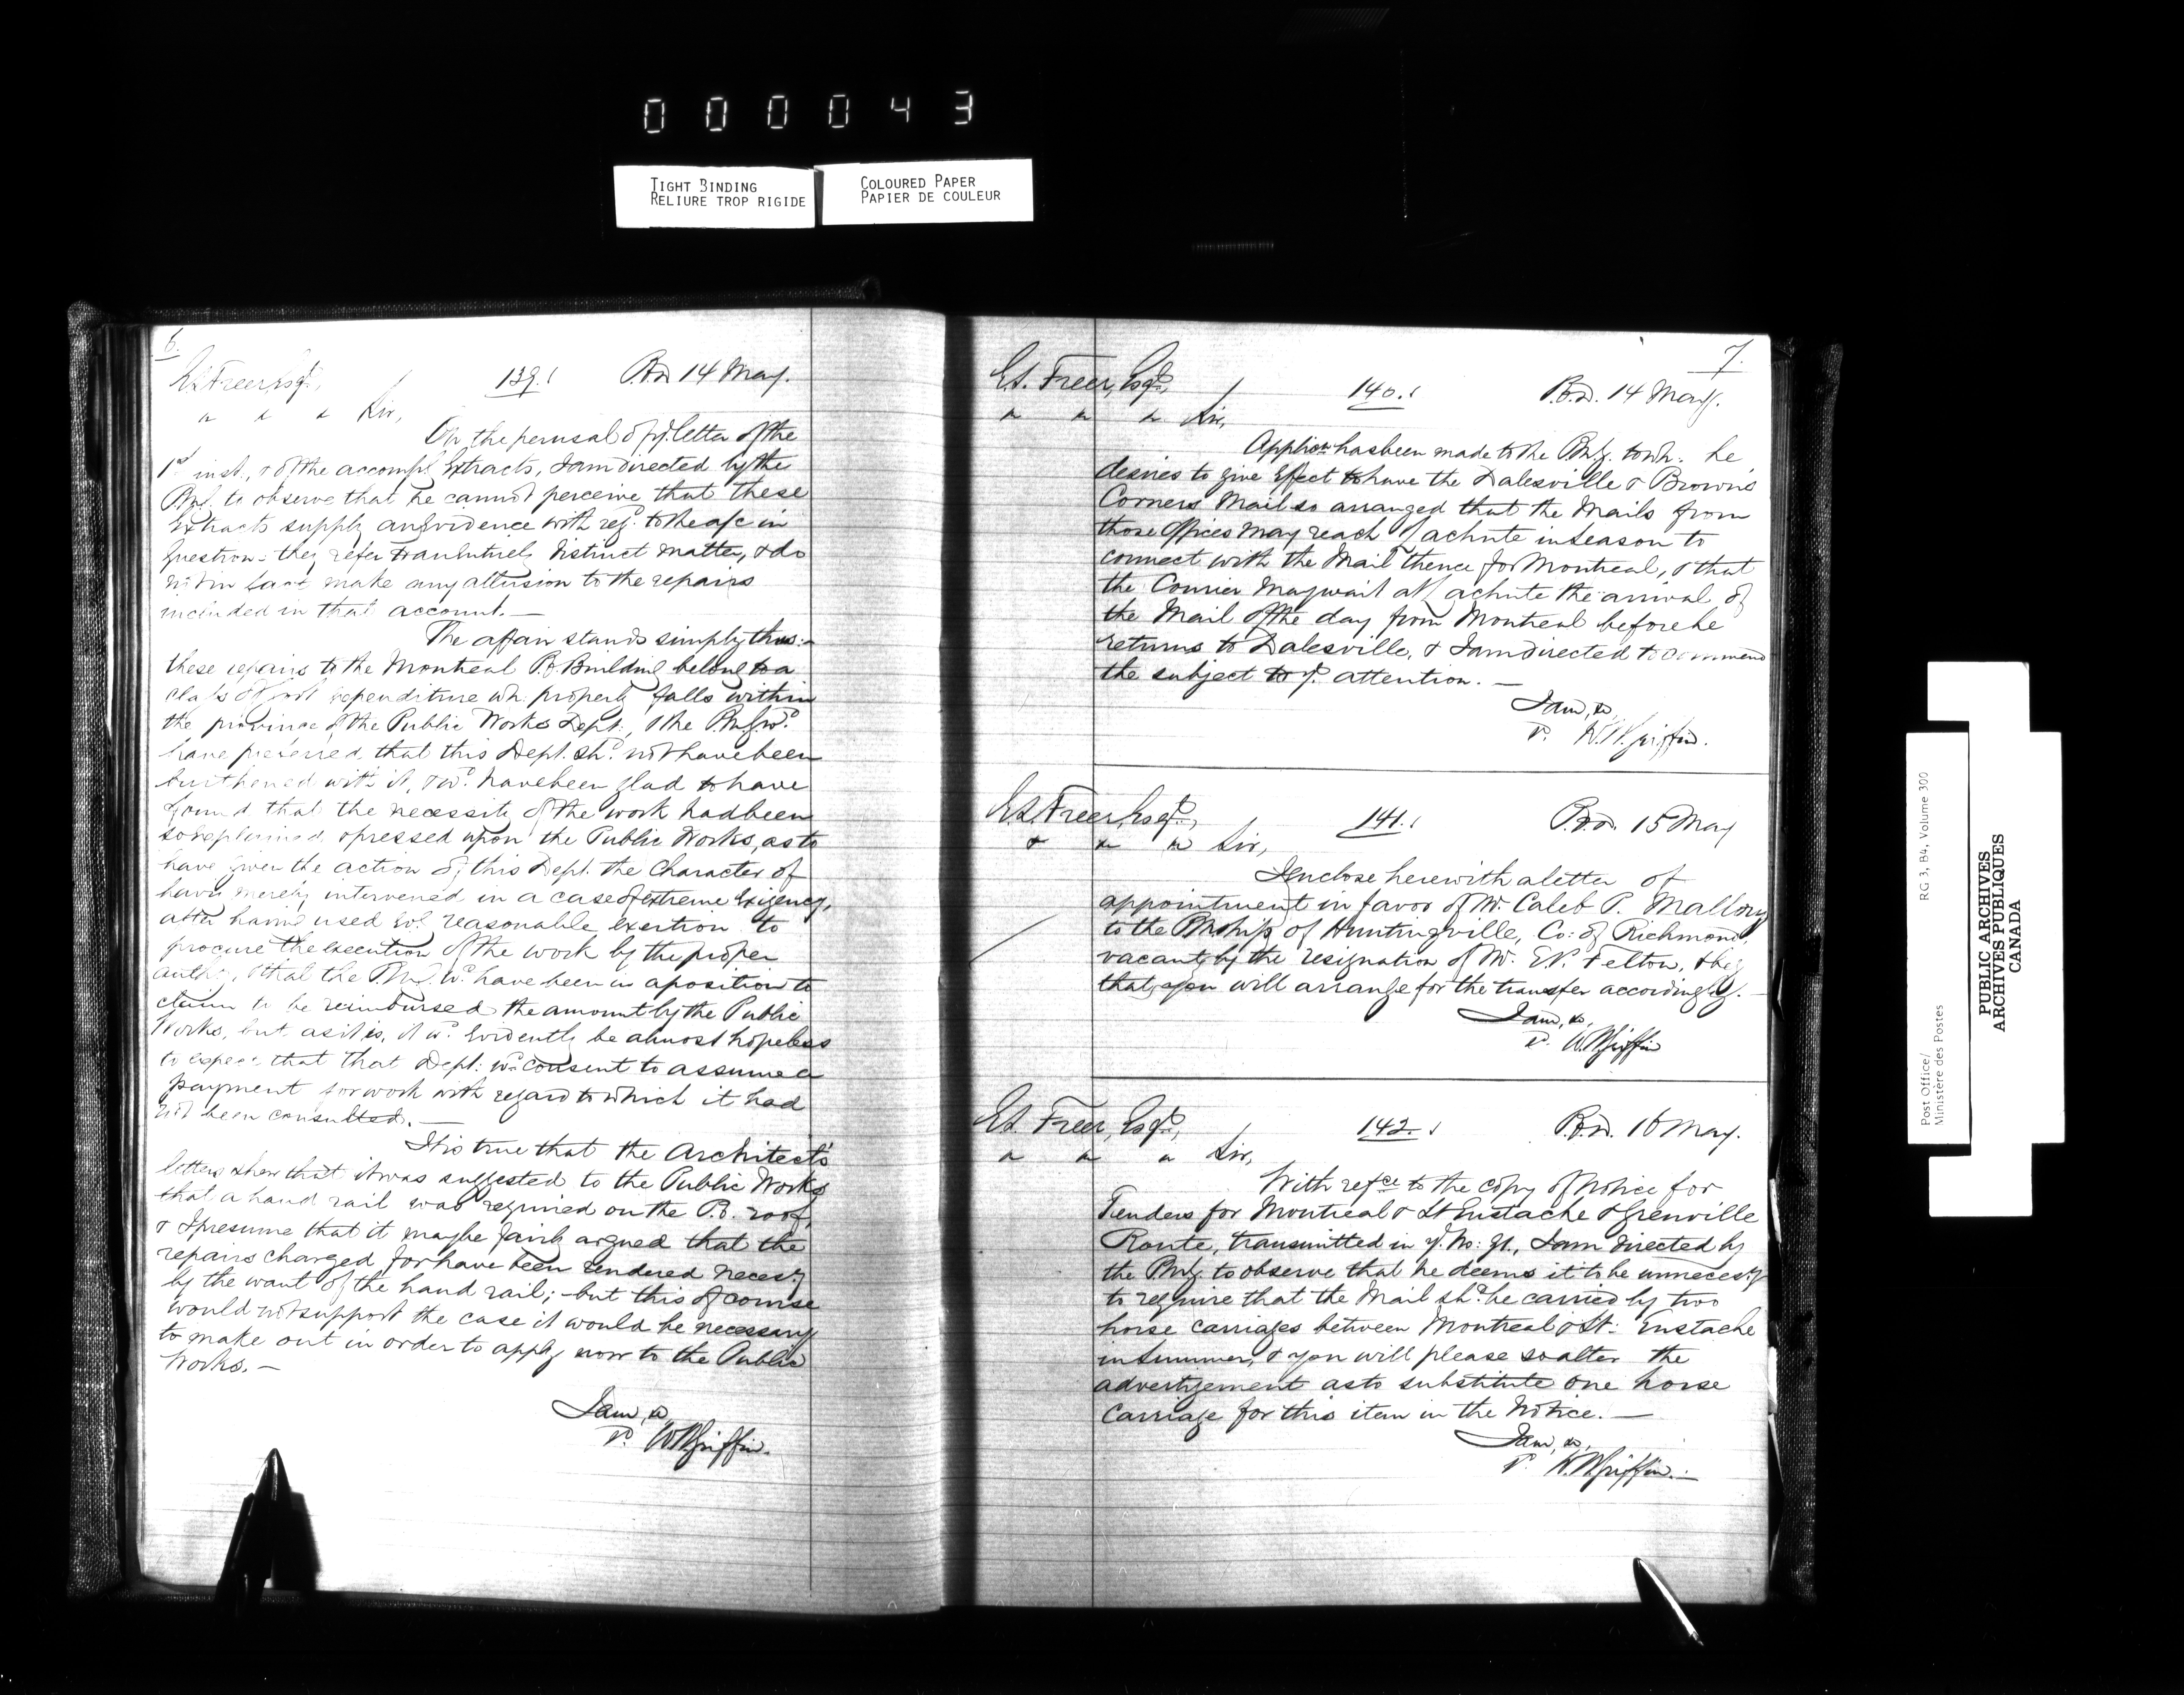 000043
TIGHT BINDING
RELIURE TROP RIGIDE
COLOURED PAPER
PAPIER DE COULEUR
6.
E.S. Freer, Esqr.,
139.
P.O.D. 14 May.
& & & Sir,
On the perusal of yr. letter of the
1st inst., & of the accompg. Extracts, I am directed by the
P.M.G. to observe that he cannot perceive that these
Extracts supply any Evidence with refce. to the a/c in
question - they refer to an Entirely distinct matter, & do
not in fact make any allusion to the repairs
included in that account. —
The affair stands simply thus: -
these repairs to the Montreal P.O. Building belong to a
class of expenditure wh. properly falls within
the province of the Public Works Dept., & the P.M.G. wd.
have preferred that this Dept. shd. not have been
burthened with it, & wd. have been glad to have
found that the necessity of the work had been
so explained & pressed upon the Public Works, as to
have given the action of this Dept. the character of
having merely intervened in a case of extreme Exigency,
after having used Evy. reasonable exertion to
procure the execution of the work by the proper
authy., & that the P.M.G. wd. have been in a position to
claim to be reimbursed the amount by the Public
Works, but as it is, it wd. Evidently be almost hopeless
to expect that that Dept. wd. consent to assume a
payment for work with regard to which it had
not been consulted. —
It is true that the Architect's
letters shew that it was suggested to the Public Works
that a hand rail was required on the P.O. roof,
& I presume that it may be fairly argued that the
repairs charged for have been rendered necesy.
by the want of the hand rail; - but this of course
would not support the case it would be necessary
to make out in order to apply now to the Public
Works. —
I am, &
p. W H Griffin.
7.
E.S. Freer, Esqr.,
140.
P.O.D. 14 May.
& & & Sir,
Applicon. has been made to the P.M.G. to wh. he
desires to give Effect to have the Dalesville & Brown's
Corners Mail so arranged that the Mails from
those Offices may reach Lachute in season to
connect with the Mail thence for Montreal, & that
the Courier may wait at Lachute the arrival of
the Mail of the day from Montreal before he
returns to Dalesville, & I am directed to commend
the subject to yr. attention. —
I am, &
p. W. H. Griffin.
E.S. Freer, Esqr.,
141.
P.O.D. 15 May
& & & Sir,
I enclose herewith a letter of
appointment in favor of Mr. Caleb P. Mallory
to the PMship of Huntingville, Co: of Richmond,
vacant by the resignation of Mr. E.P. Felton, & beg
that you will arrange for the transfer accordingly. —
I am, &,
p. W H Griffin
E.S. Freer, Esqr.,
142.
P.O.D. 16 May.
& & & Sir,
With refce to the copy of Notice for
Tenders for Montreal & St Eustache & Grenville
Route, transmitted in yr. No: 91., I am directed by
the P.M.G. to observe that he deems it to be unnecesy.
to require that the Mail shd. be carried by two
horse carriages between Montreal & St: Eustache
in Summer, & you will please so alter the
advertizement as to substitute one horse
carriage for this item in the Notice. —
I am, &,
p. W. H Griffin. —
RG 3, B4, Volume 300
Post Office/
Ministère des Postes
PUBLIC ARCHIVES
ARCHIVES PUBLIQUES
CANADA